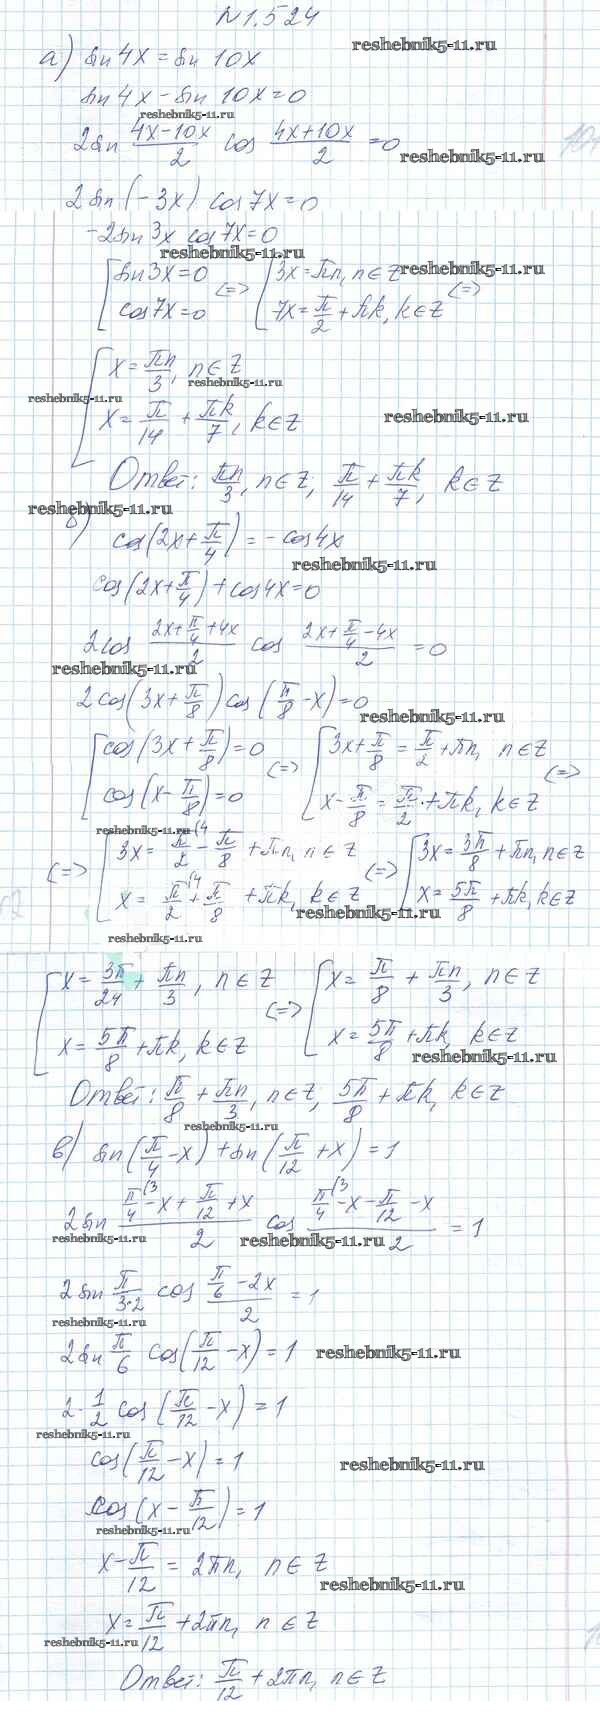 N 1.524
reshebnik5-11.ru
а) sin 4x = sin 10x
sin 4x - sin 10x = 0
reshebnik5-11.ru
2 sin (4x-10x)/2 cos (4x+10x)/2 = 0
reshebnik5-11.ru
2 sin (-3x) cos 7x = 0
-2 sin 3x cos 7x = 0
reshebnik5-11.ru
reshebnik5-11.ru
[ sin 3x = 0 (=) [ 3x = πn, n ∈ Z (=)
cos 7x = 0 7x = π/2 + πk, k ∈ Z
[ x = πn/3, n ∈ Z
reshebnik5-11.ru
reshebnik5-11.ru
x = π/14 + πk/7, k ∈ Z
reshebnik5-11.ru
Ответ: πn/3, n ∈ Z; π/14 + πk/7, k ∈ Z
reshebnik5-11.ru
б) cos(2x + π/4) = - cos 4x
reshebnik5-11.ru
cos(2x + π/4) + cos 4x = 0
2 cos (2x + π/4 + 4x)/2 cos (2x + π/4 - 4x)/2 = 0
reshebnik5-11.ru
2 cos(3x + π/8) cos(π/8 - x) = 0
reshebnik5-11.ru
[ cos(3x + π/8) = 0 (=) [ 3x + π/8 = π/2 + πn, n ∈ Z (=)
cos(x - π/8) = 0 x - π/8 = π/2 + πk, k ∈ Z
reshebnik5-11.ru
(=) [ 3x = π/2 (4 - π/8 + πn, n ∈ Z (=) [ 3x = 3π/8 + πn, n ∈ Z
x = π/2 (4 + π/8 + πk, k ∈ Z x = 5π/8 + πk, k ∈ Z
reshebnik5-11.ru
reshebnik5-11.ru
[ x = 3π/24 + πn/3, n ∈ Z (=) [ x = π/8 + πn/3, n ∈ Z
x = 5π/8 + πk, k ∈ Z x = 5π/8 + πk, k ∈ Z
reshebnik5-11.ru
Ответ: π/8 + πn/3, n ∈ Z; 5π/8 + πk, k ∈ Z
reshebnik5-11.ru
в) sin(π/4 - x) + sin(π/12 + x) = 1
2 sin (π/4 (3 - x + π/12 + x)/2 cos (π/4 (3 - x - π/12 - x)/2 = 1
reshebnik5-11.ru
reshebnik5-11.ru
2 sin π/3·2 cos (π/6 - 2x)/2 = 1
reshebnik5-11.ru
2 sin π/6 cos(π/12 - x) = 1
reshebnik5-11.ru
2 · 1/2 cos(π/12 - x) = 1
reshebnik5-11.ru
cos(π/12 - x) = 1
reshebnik5-11.ru
cos(x - π/12) = 1
reshebnik5-11.ru
x - π/12 = 2πn, n ∈ Z
reshebnik5-11.ru
x = π/12 + 2πn, n ∈ Z
reshebnik5-11.ru
Ответ: π/12 + 2πn, n ∈ Z